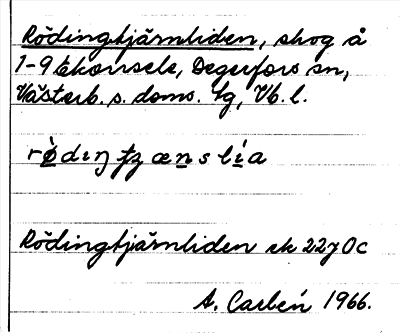 Rödingtjärnliden, skog å
1-9 Ekorrsele, Degerfors sn,
Västerb. s. doms. tg, Vb. l.
Rödingtjärnliden ek 22 J 0c
A. Carbén 1966.